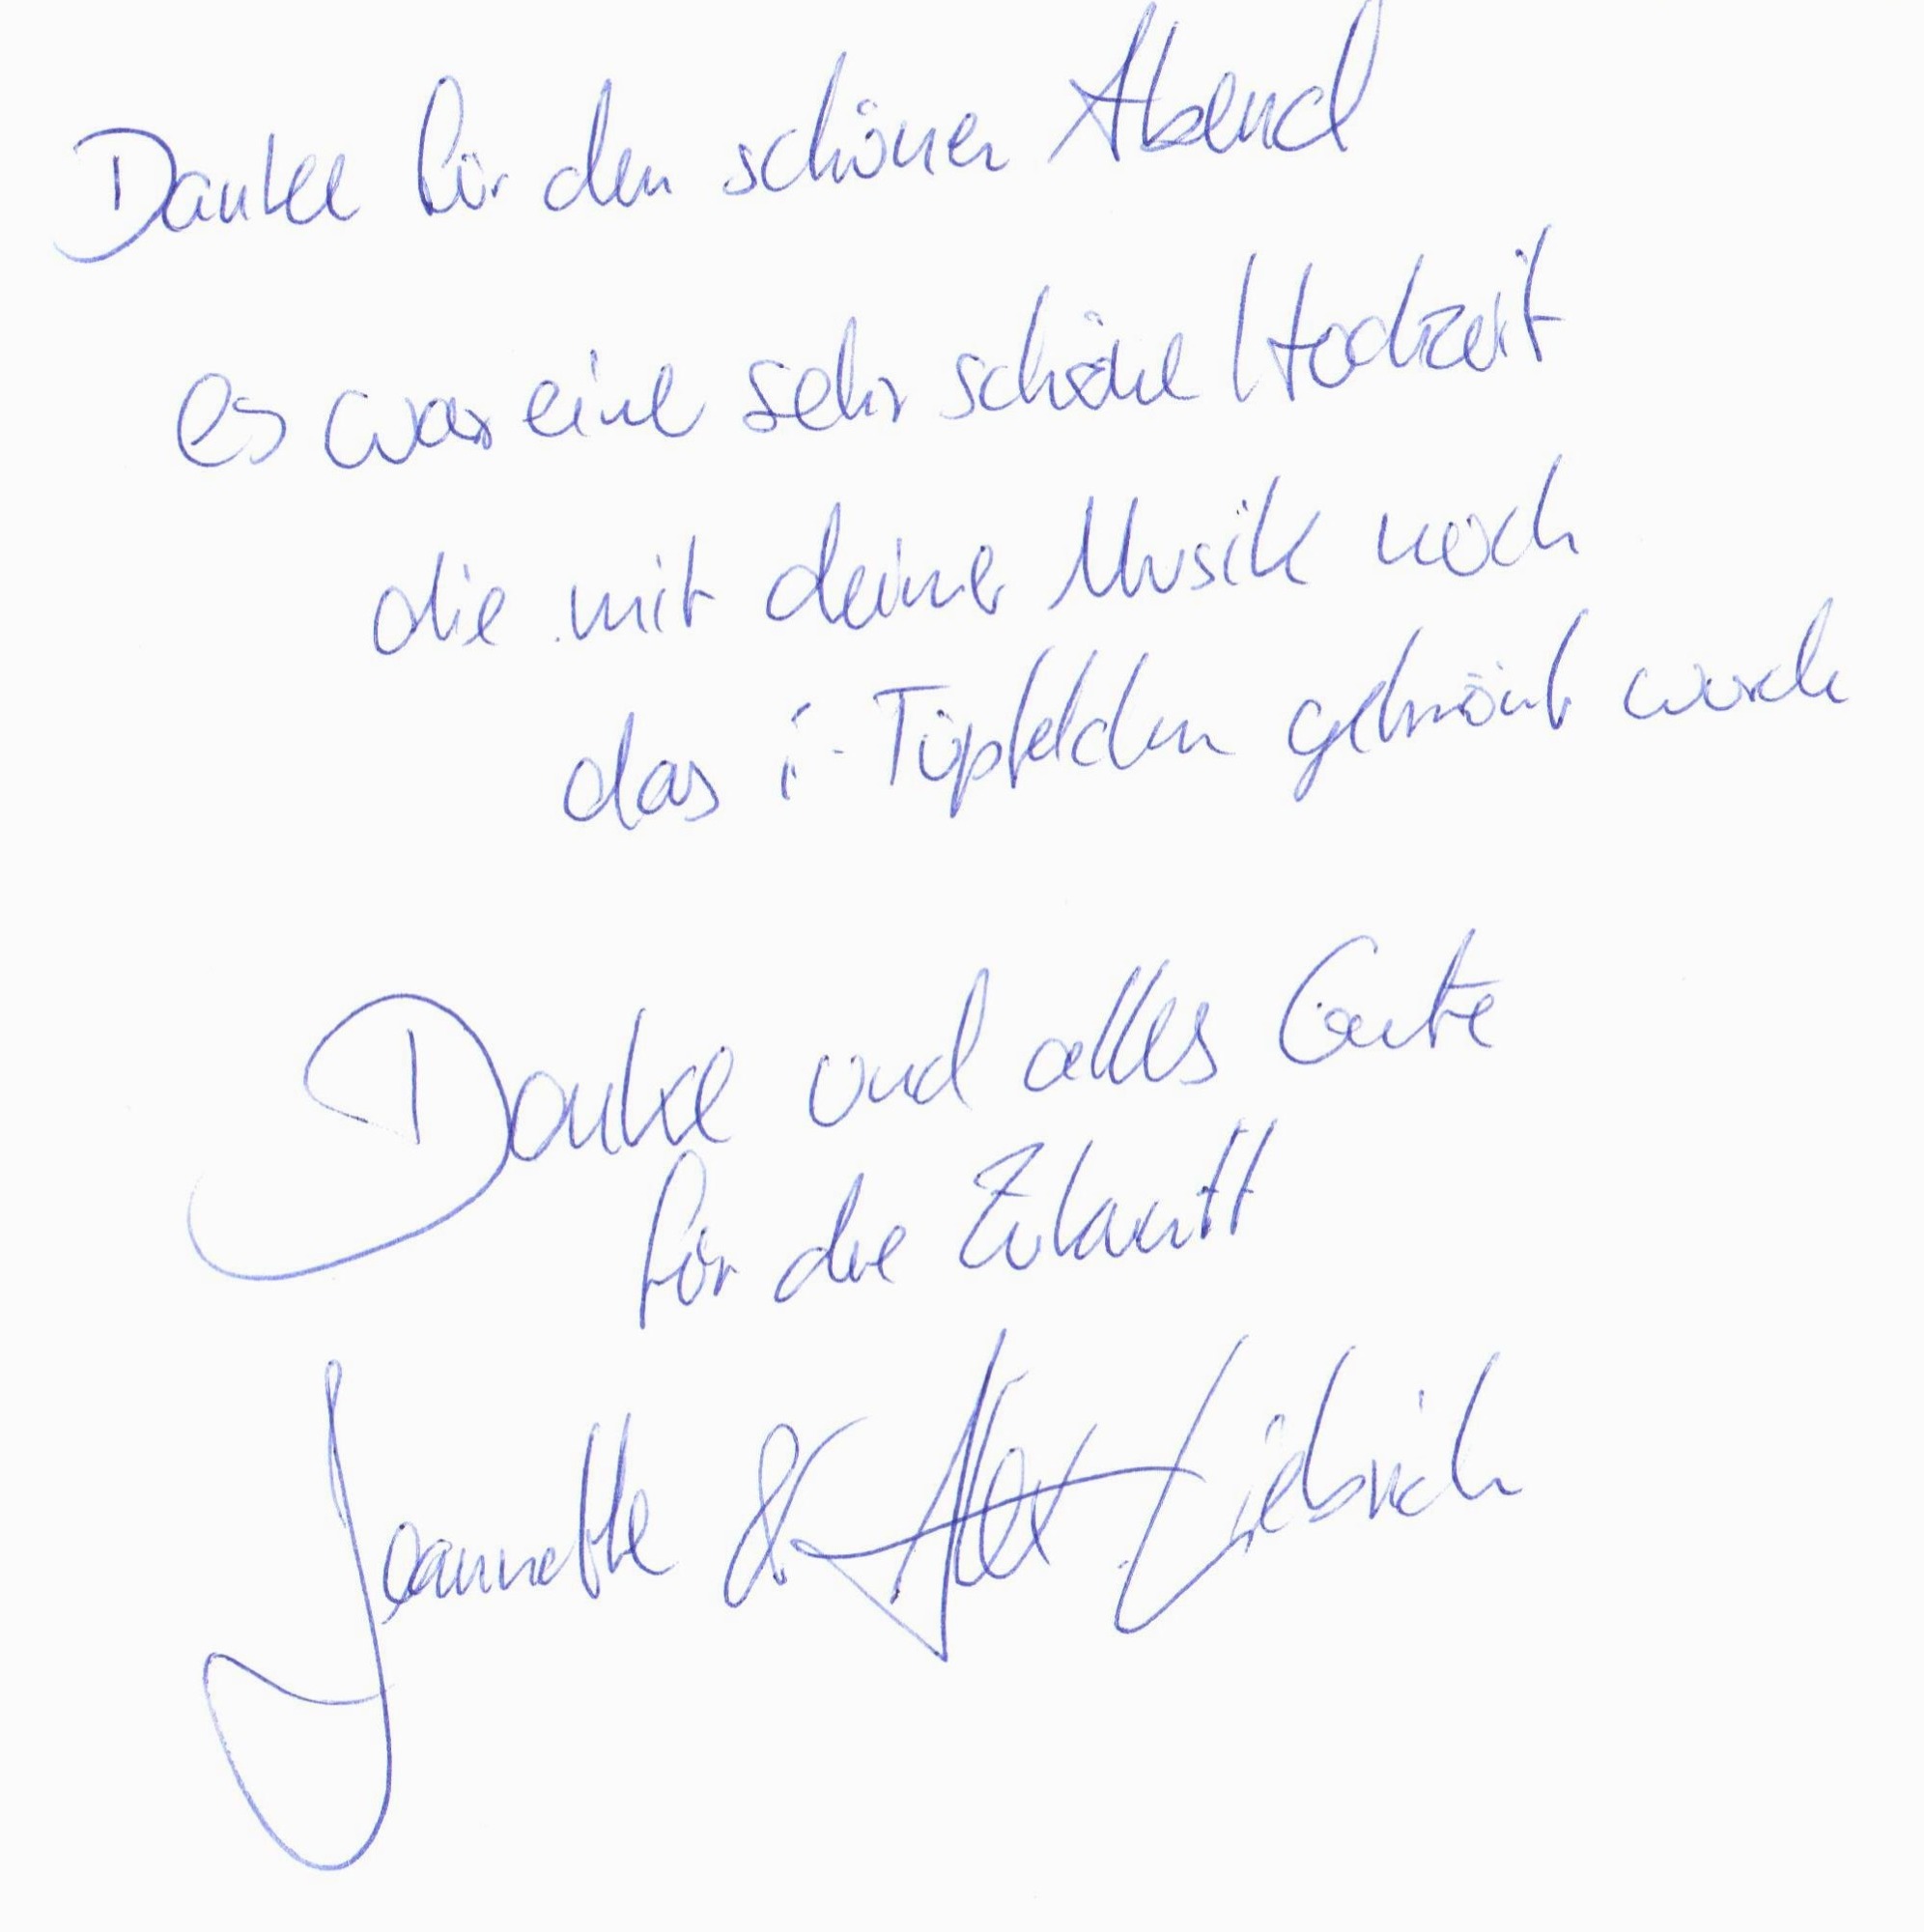 Danke für den schönen Abend
es war eine sehr schöne Hochzeit
die mit deiner Musik noch
das i-Tüpfelchen gekrönt wurde
Danke und alles Gute
für die Zukunft
Jeannette & Alex Liebrich